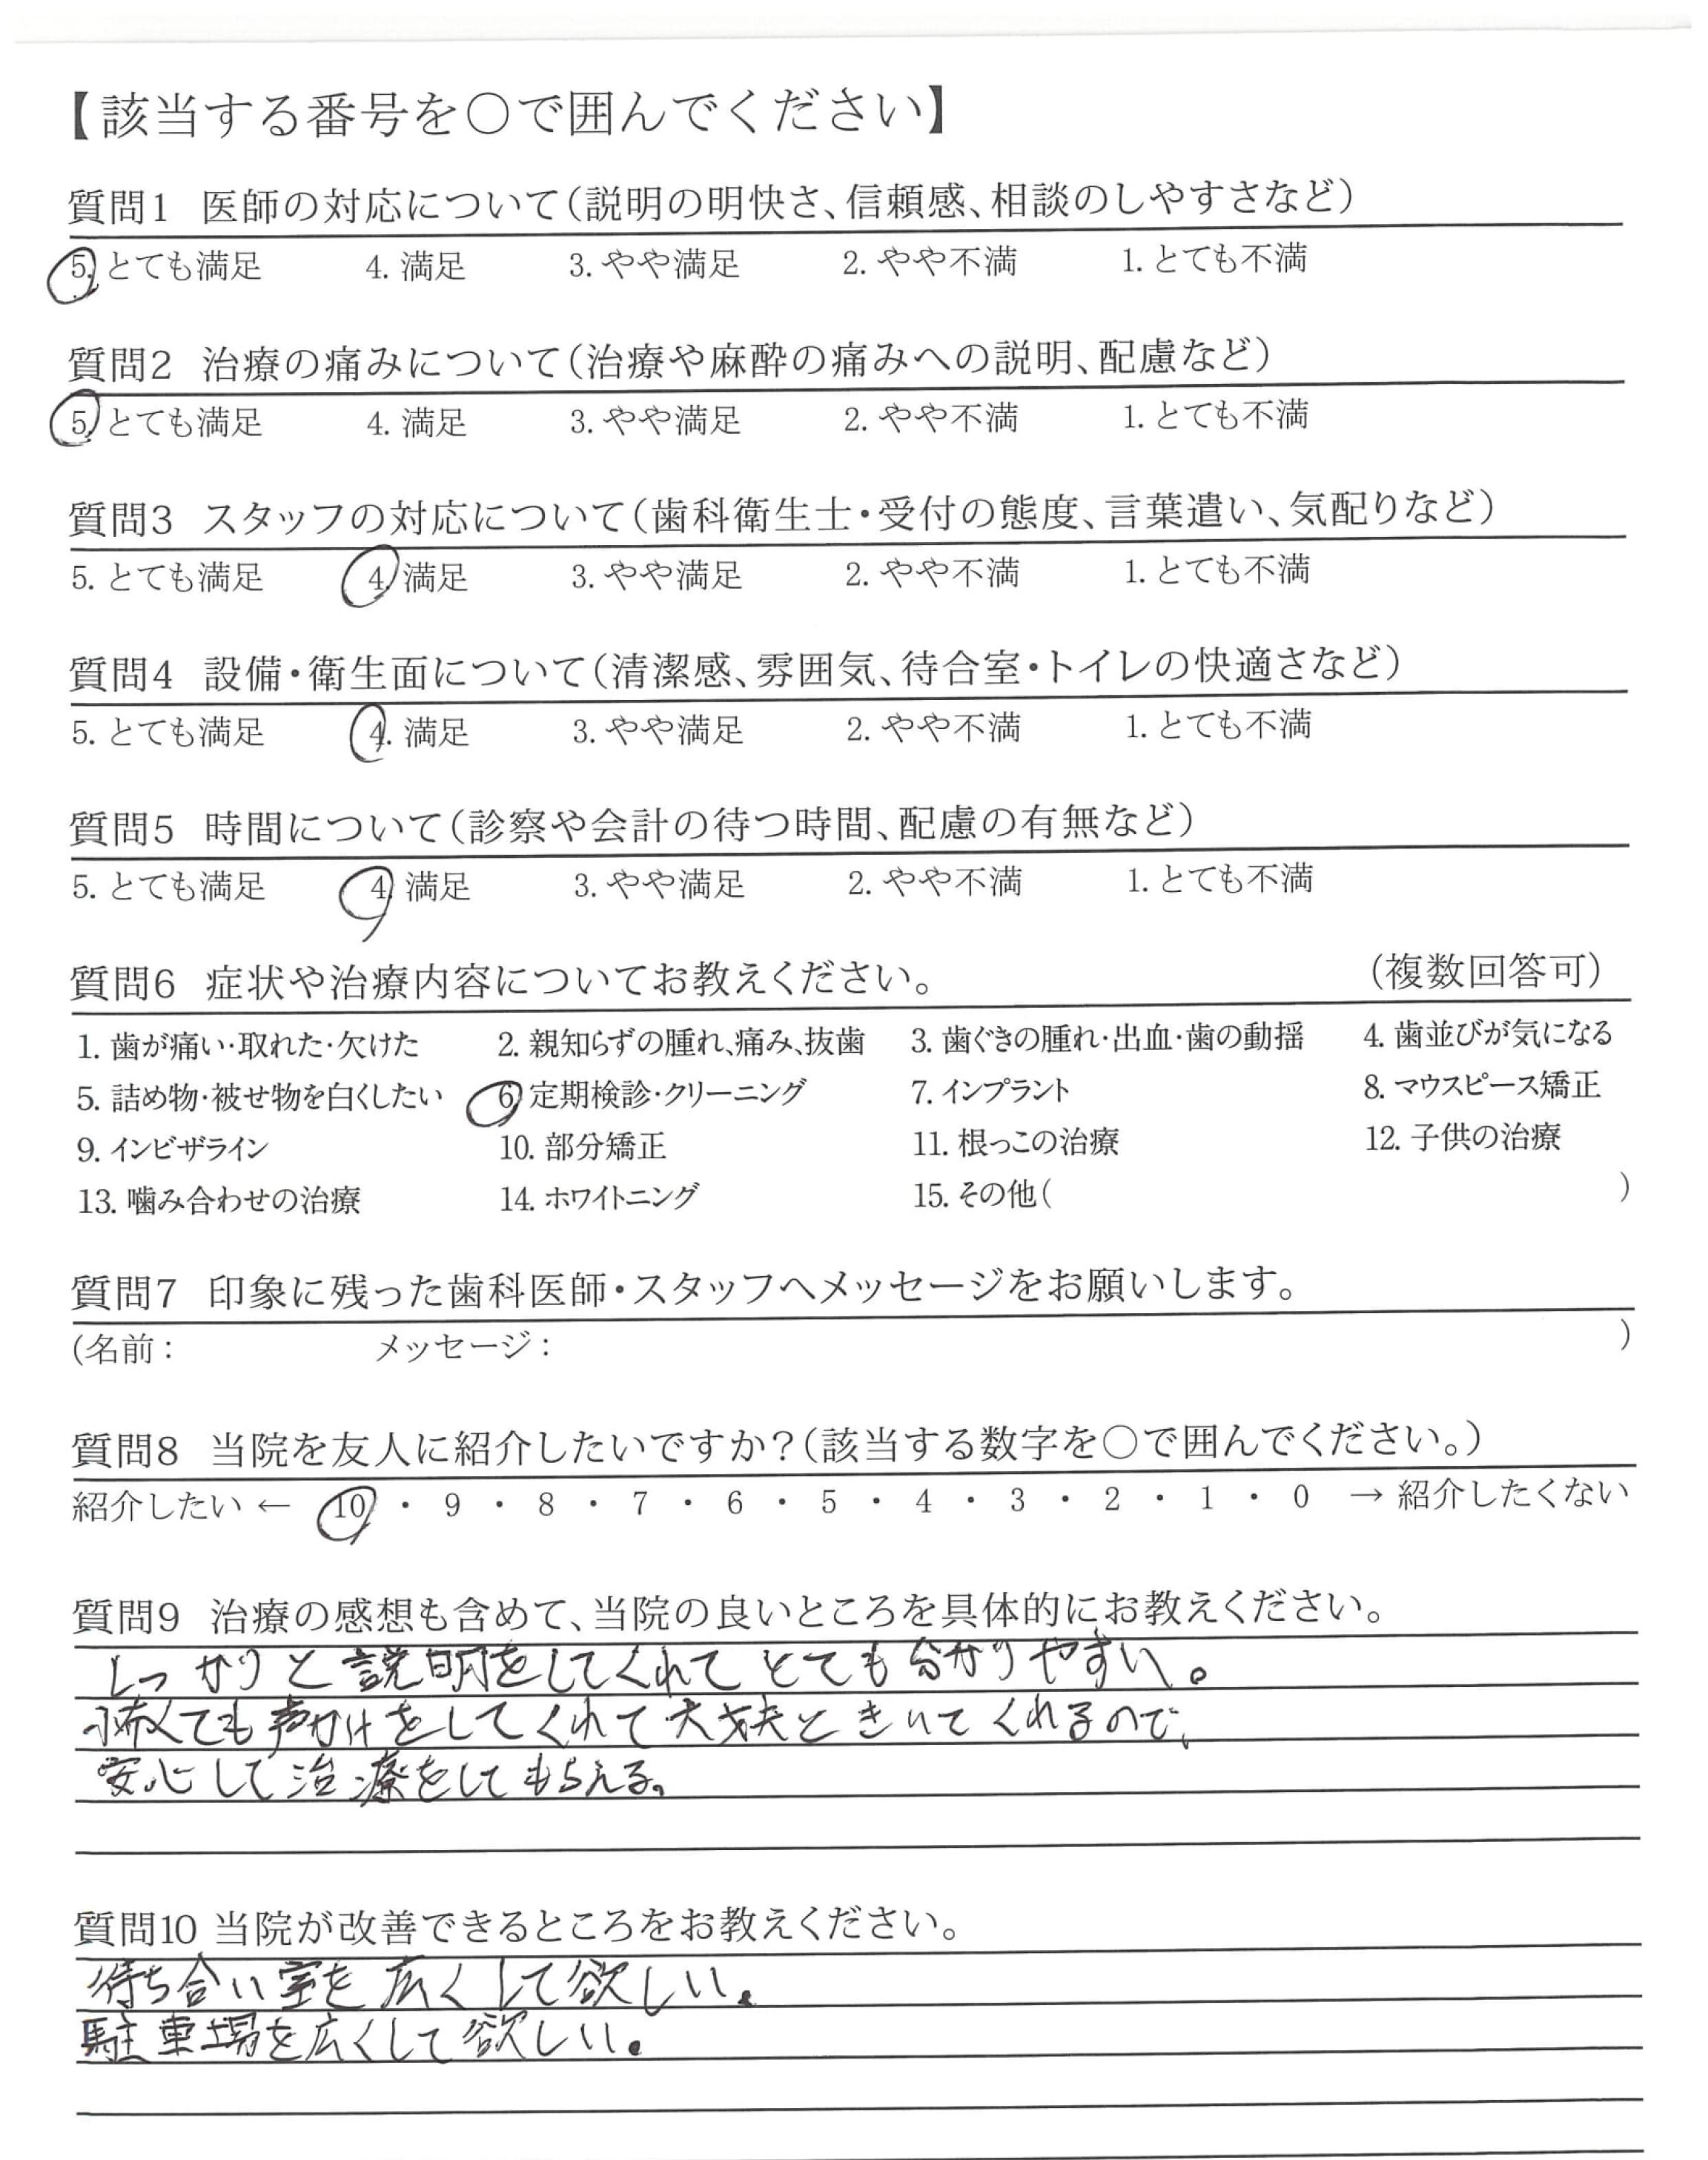 【該当する番号を○で囲んでください】
質問1 医師の対応について(説明の明快さ、信頼感、相談のしやすさなど)
5. とても満足 4. 満足 3. やや満足 2. やや不満 1. とても不満
質問2 治療の痛みについて(治療や麻酔の痛みへの説明、配慮など)
5. とても満足 4. 満足 3. やや満足 2. やや不満 1. とても不満
質問3 スタッフの対応について(歯科衛生士・受付の態度、言葉遣い、気配りなど)
5. とても満足 4. 満足 3. やや満足 2. やや不満 1. とても不満
質問4 設備・衛生面について(清潔感、雰囲気、待合室・トイレの快適さなど)
5. とても満足 4. 満足 3. やや満足 2. やや不満 1. とても不満
質問5 時間について(診察や会計の待つ時間、配慮の有無など)
5. とても満足 4. 満足 3. やや満足 2. やや不満 1. とても不満
質問6 症状や治療内容についてお教えください。 (複数回答可)
1. 歯が痛い・取れた・欠けた 2. 親知らずの腫れ、痛み、抜歯 3. 歯ぐきの腫れ・出血・歯の動揺 4. 歯並びが気になる
5. 詰め物・被せ物を白くしたい 6. 定期検診・クリーニング 7. インプラント 8. マウスピース矯正
9. インビザライン 10. 部分矯正 11. 根っこの治療 12. 子供の治療
13. 噛み合わせの治療 14. ホワイトニング 15. その他( )
質問7 印象に残った歯科医師・スタッフへメッセージをお願いします。
(名前： メッセージ： )
質問8 当院を友人に紹介したいですか？(該当する数字を○で囲んでください。)
紹介したい ← 10 ・ 9 ・ 8 ・ 7 ・ 6 ・ 5 ・ 4 ・ 3 ・ 2 ・ 1 ・ 0 → 紹介したくない
質問9 治療の感想も含めて、当院の良いところを具体的にお教えください。
しっかりと説明をしてくれてとても分かりやすい。
怖くても声かけをしてくれて大丈夫ときいてくれるので、
安心して治療をしてもらえる。
質問10 当院が改善できるところをお教えください。
待ち合い室を広くして欲しい。
駐車場を広くして欲しい。